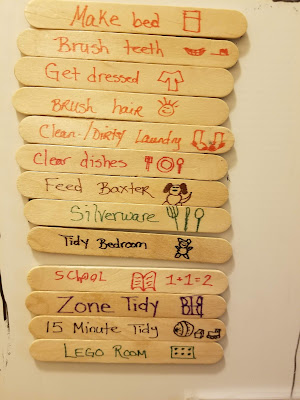 Make bed
Brush teeth
Get dressed
Brush hair
Clean/Dirty Laundry
Clear dishes
Feed Baxter
Silverware
Tidy Bedroom
School 1+1=2
Zone Tidy
15 Minute Tidy
LEGO ROOM